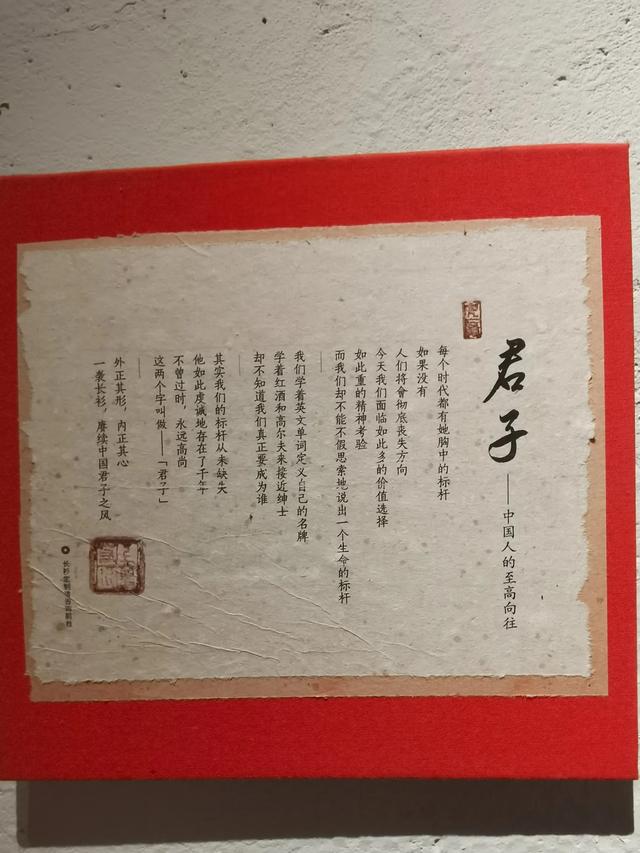 君子——中国人的至高向往
每个时代都有她胸中的标杆
如果没有
人们将會彻底丧失方向
今天我们面临如此多的价值选择
如此重的精神考验
而我们却不能不假思索地说出一个生命的标杆
我们学着英文单词定义自己的名牌
学着红酒和高尔夫来接近绅士
却不知道我们真正要成为谁
其实我们的标杆从未缺失
他如此虔诚地存在了千年
不曾过时，永远高尚
这两个字叫做——「君子」
外正其形，内正其心
一袭长衫，赓续中国君子之风
长衫定制请咨询前台